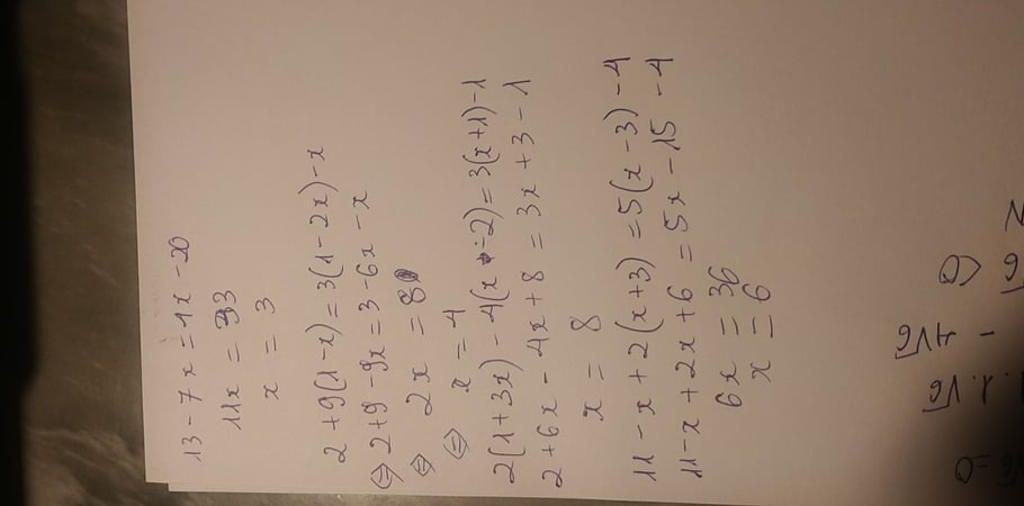 13 - 7x = 4x - 20
11x = 33
x = 3
2 + 9(1 - x) = 3(1 - 2x) - x
⇔ 2 + 9 - 9x = 3 - 6x - x
⇔ 2x = 8
⇔ x = 4
2(1 + 3x) - 4(x - 2) = 3(x + 1) - 1
2 + 6x - 4x + 8 = 3x + 3 - 1
x = 8
11 - x + 2(x + 3) = 5(x - 3) - 4
11 - x + 2x + 6 = 5x - 15 - 4
6x = 36
x = 6